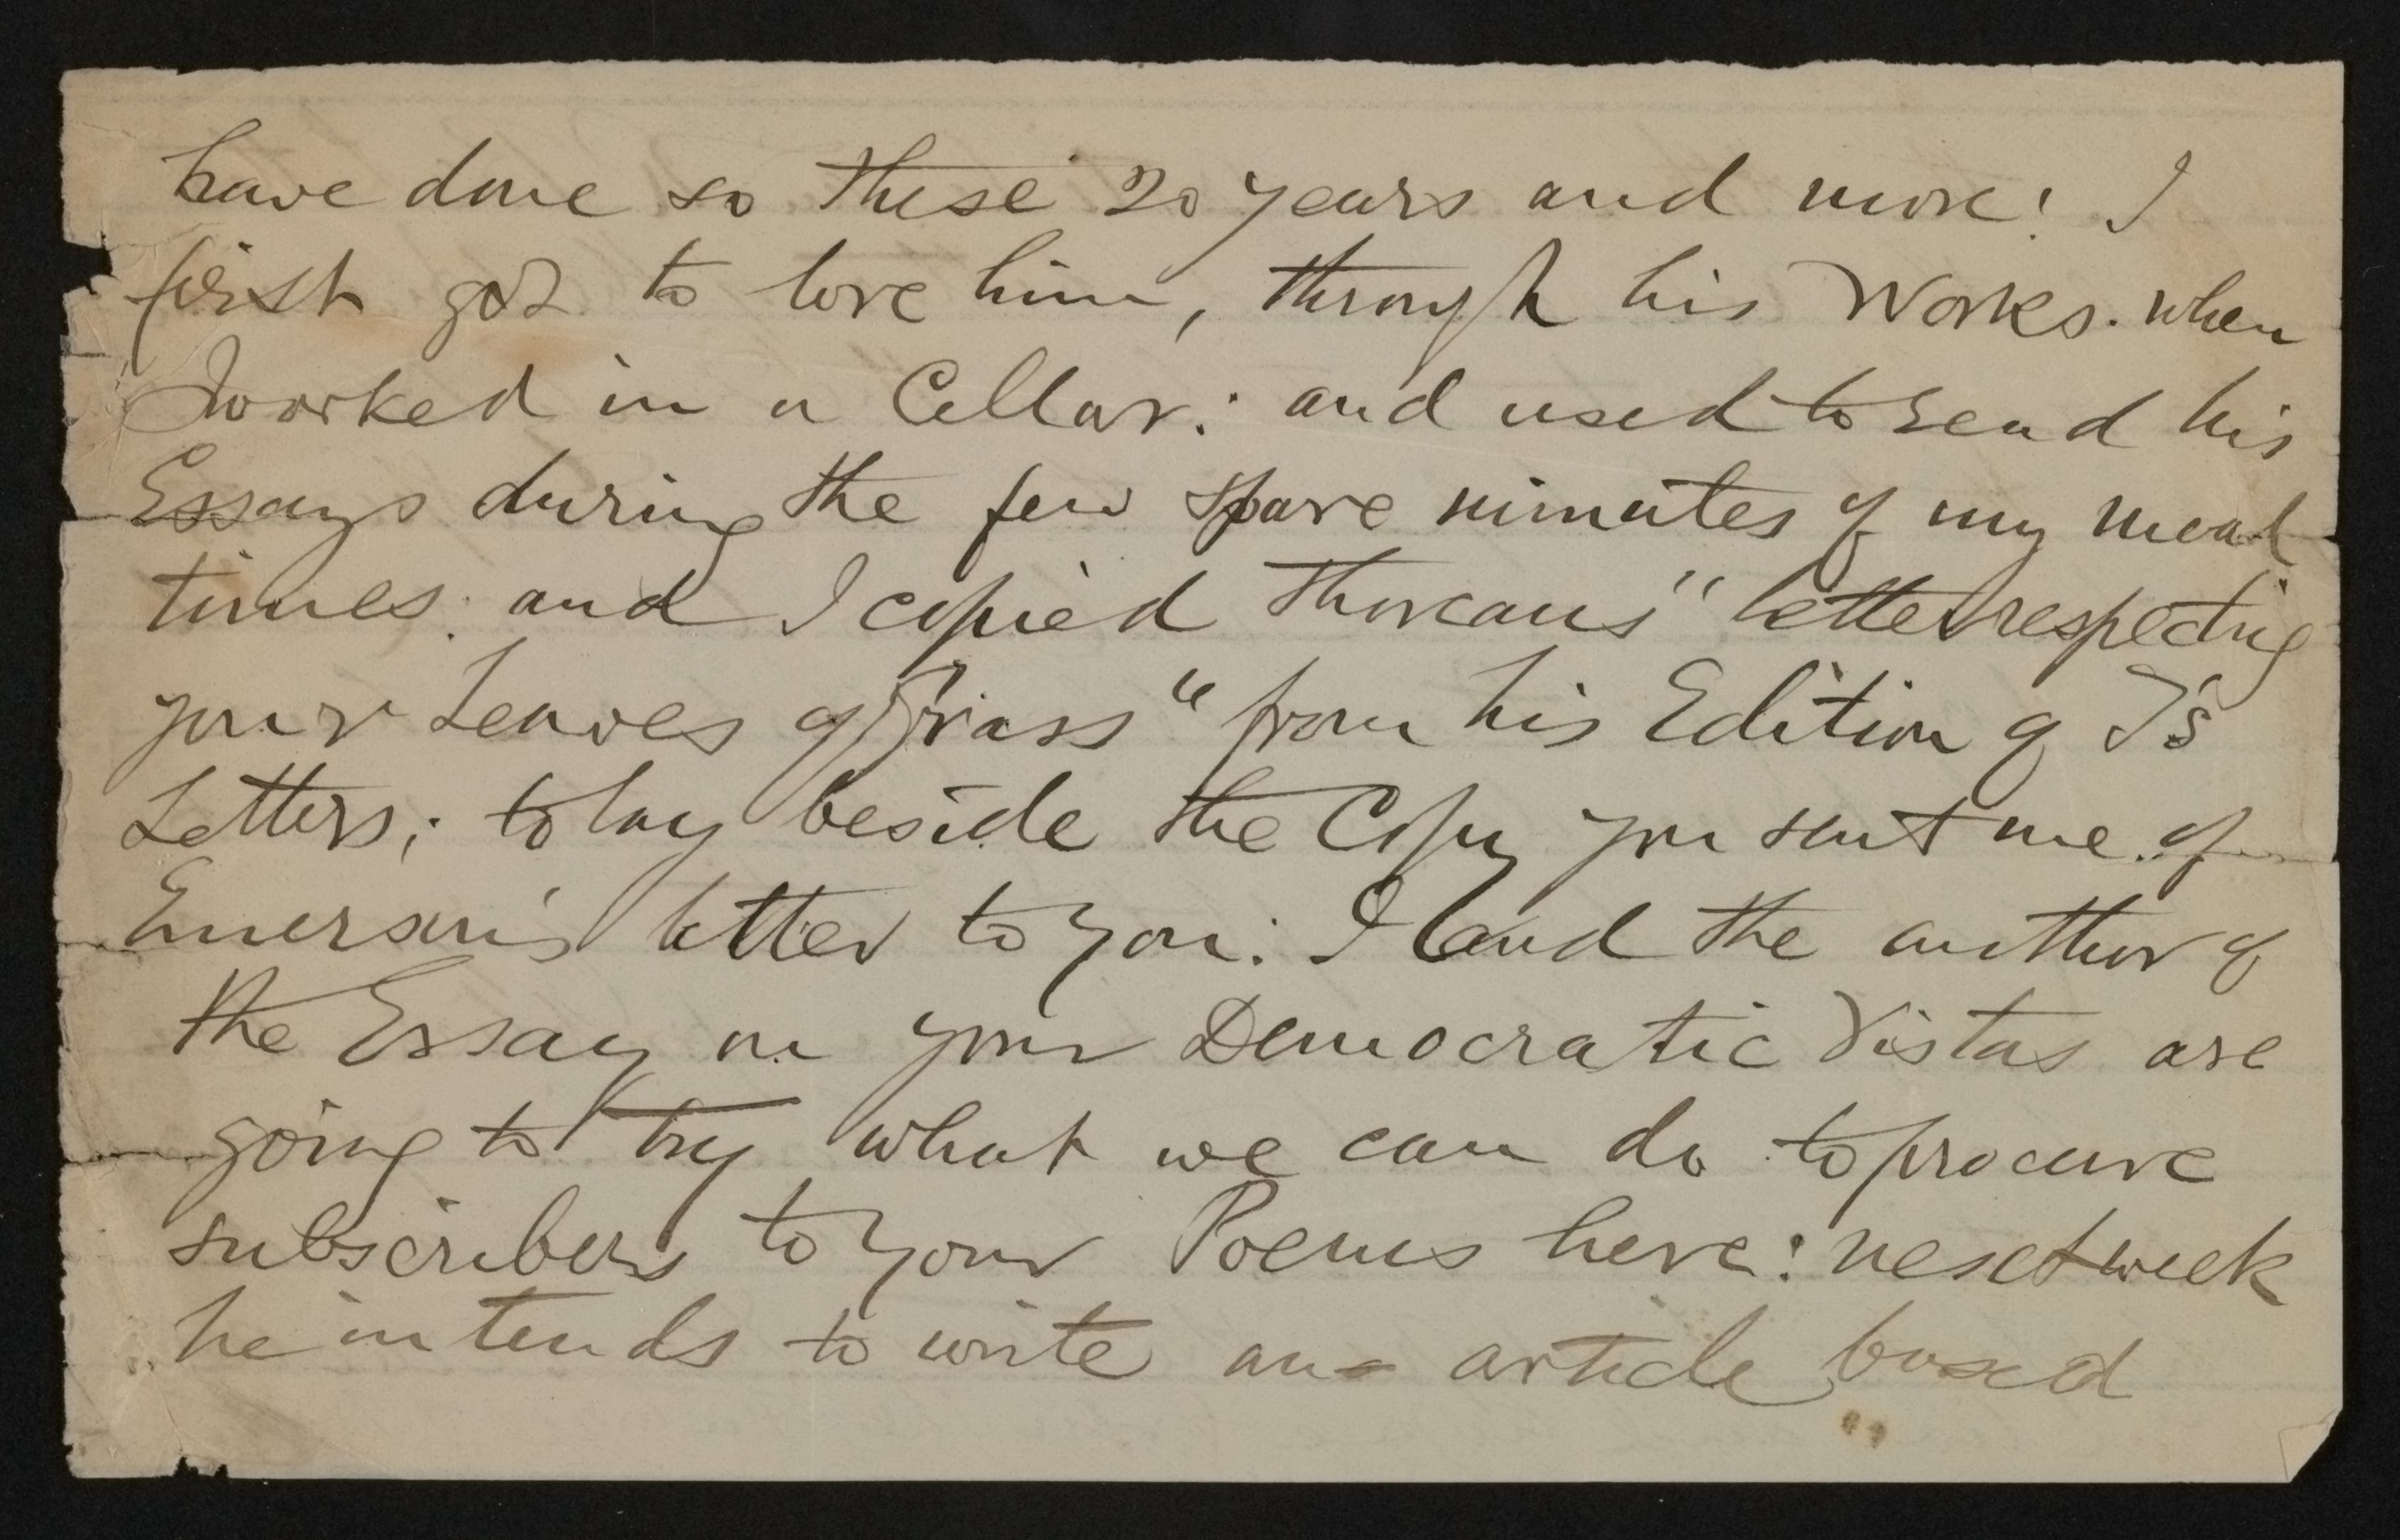 have done so these 20 years and more! I
first got to love him, through his Works. when
I worked in a Cellar: and used to read his
Essays during the few spare minutes of my meal
times: and I copied Thoreaus" letter respecting
your Leaves of Grass" from his Edition of T's
Letters; to lay beside the Copy you sent me of
Emerson's letter to you: I and the author of
the Essay on your Democratic Vistas are
going to try what we can do to procure
subscribers to your Poems here: next week
he intends to write an article based